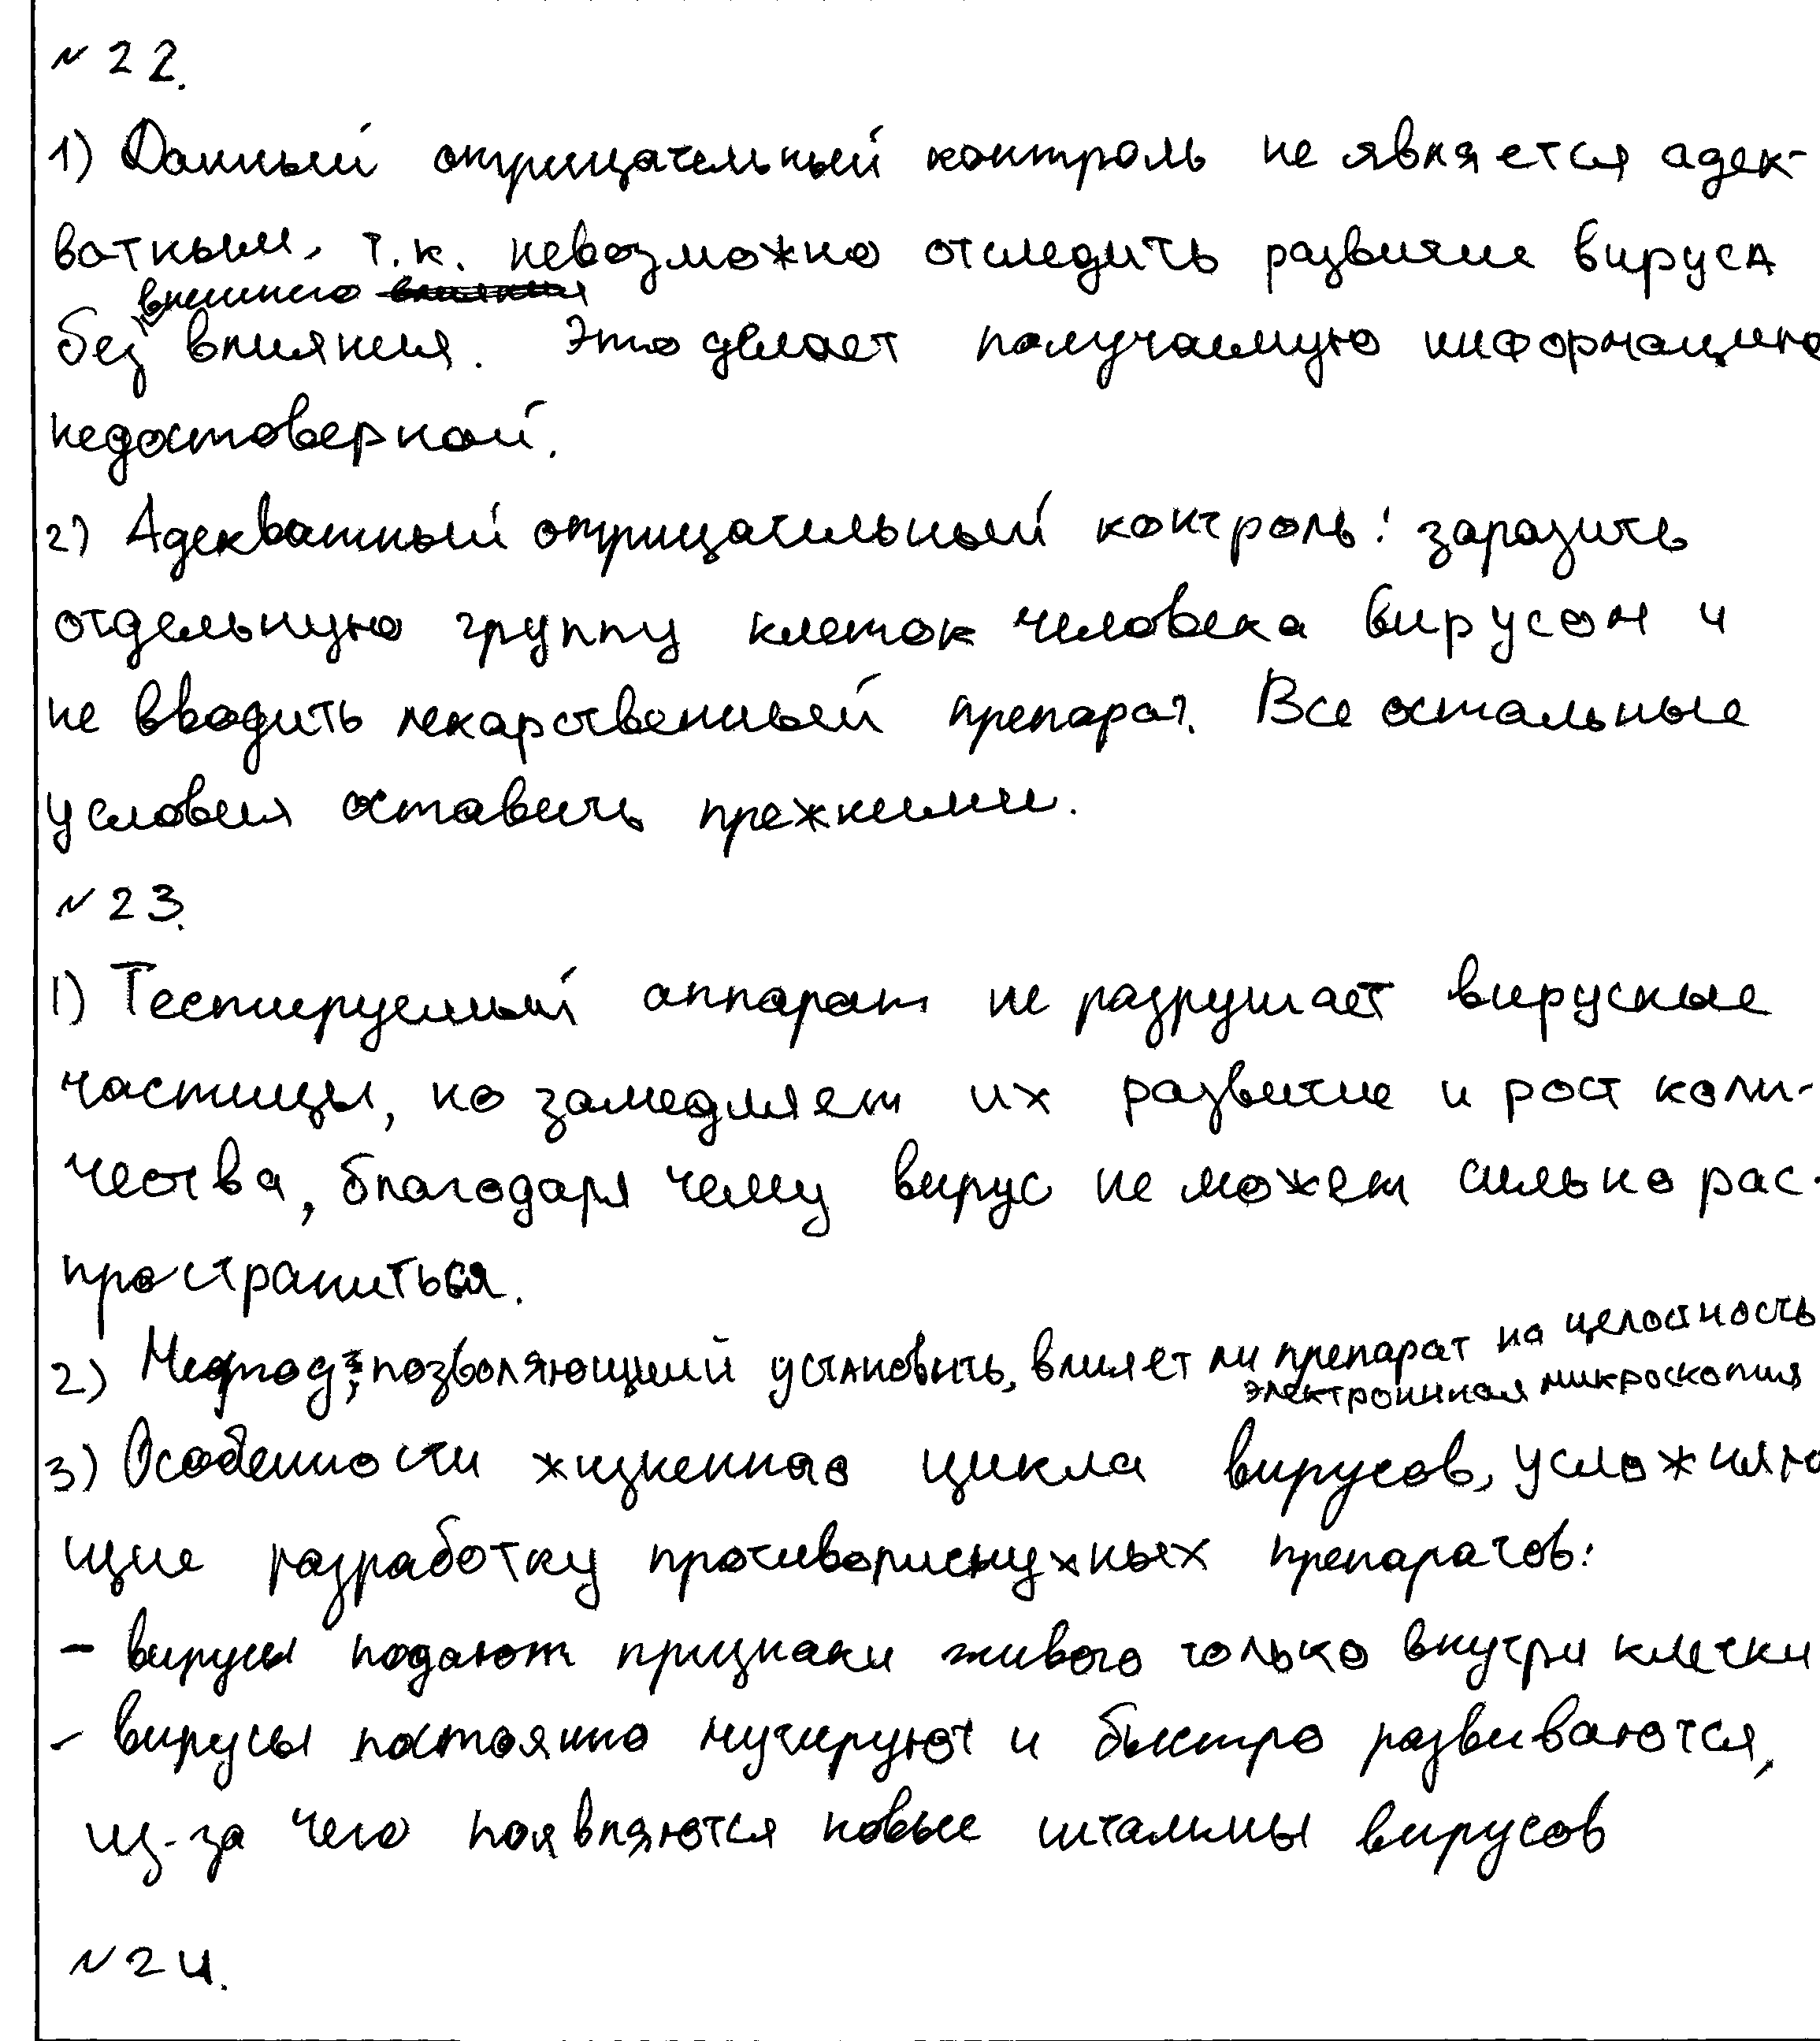 №22.
1) Данный отрицательный контроль не является адек-
ватным, т.к. невозможно отследить развитие вируса
внешнего
без влияния. Это делает получаемую информацию
недостоверной.
2) Адекватный отрицательный контроль: заразить
отдельную группу клеток человека вирусом и
не вводить лекарственный препарат. Все остальные
условия оставить прежними.
№23.
1) Тестируемый аппарат не разрушает вирусные
частицы, но замедляет их развитие и рост коли-
чества, благодаря чему вирус не может сильно рас-
пространиться.
2) Метод, позволяющий установить, влияет ли препарат на целостность
электронная микроскопия
3) Особенности жизненного цикла вирусов, усложняю
щие разработку противовирусных препаратов:
- вирусы подают признаки живого только внутри клетки
- вирусы постоянно мутируют и быстро развиваются,
из-за чего появляются новые штаммы вирусов
№24.